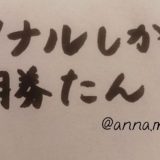 ナルしか
用券たん
@anna.m